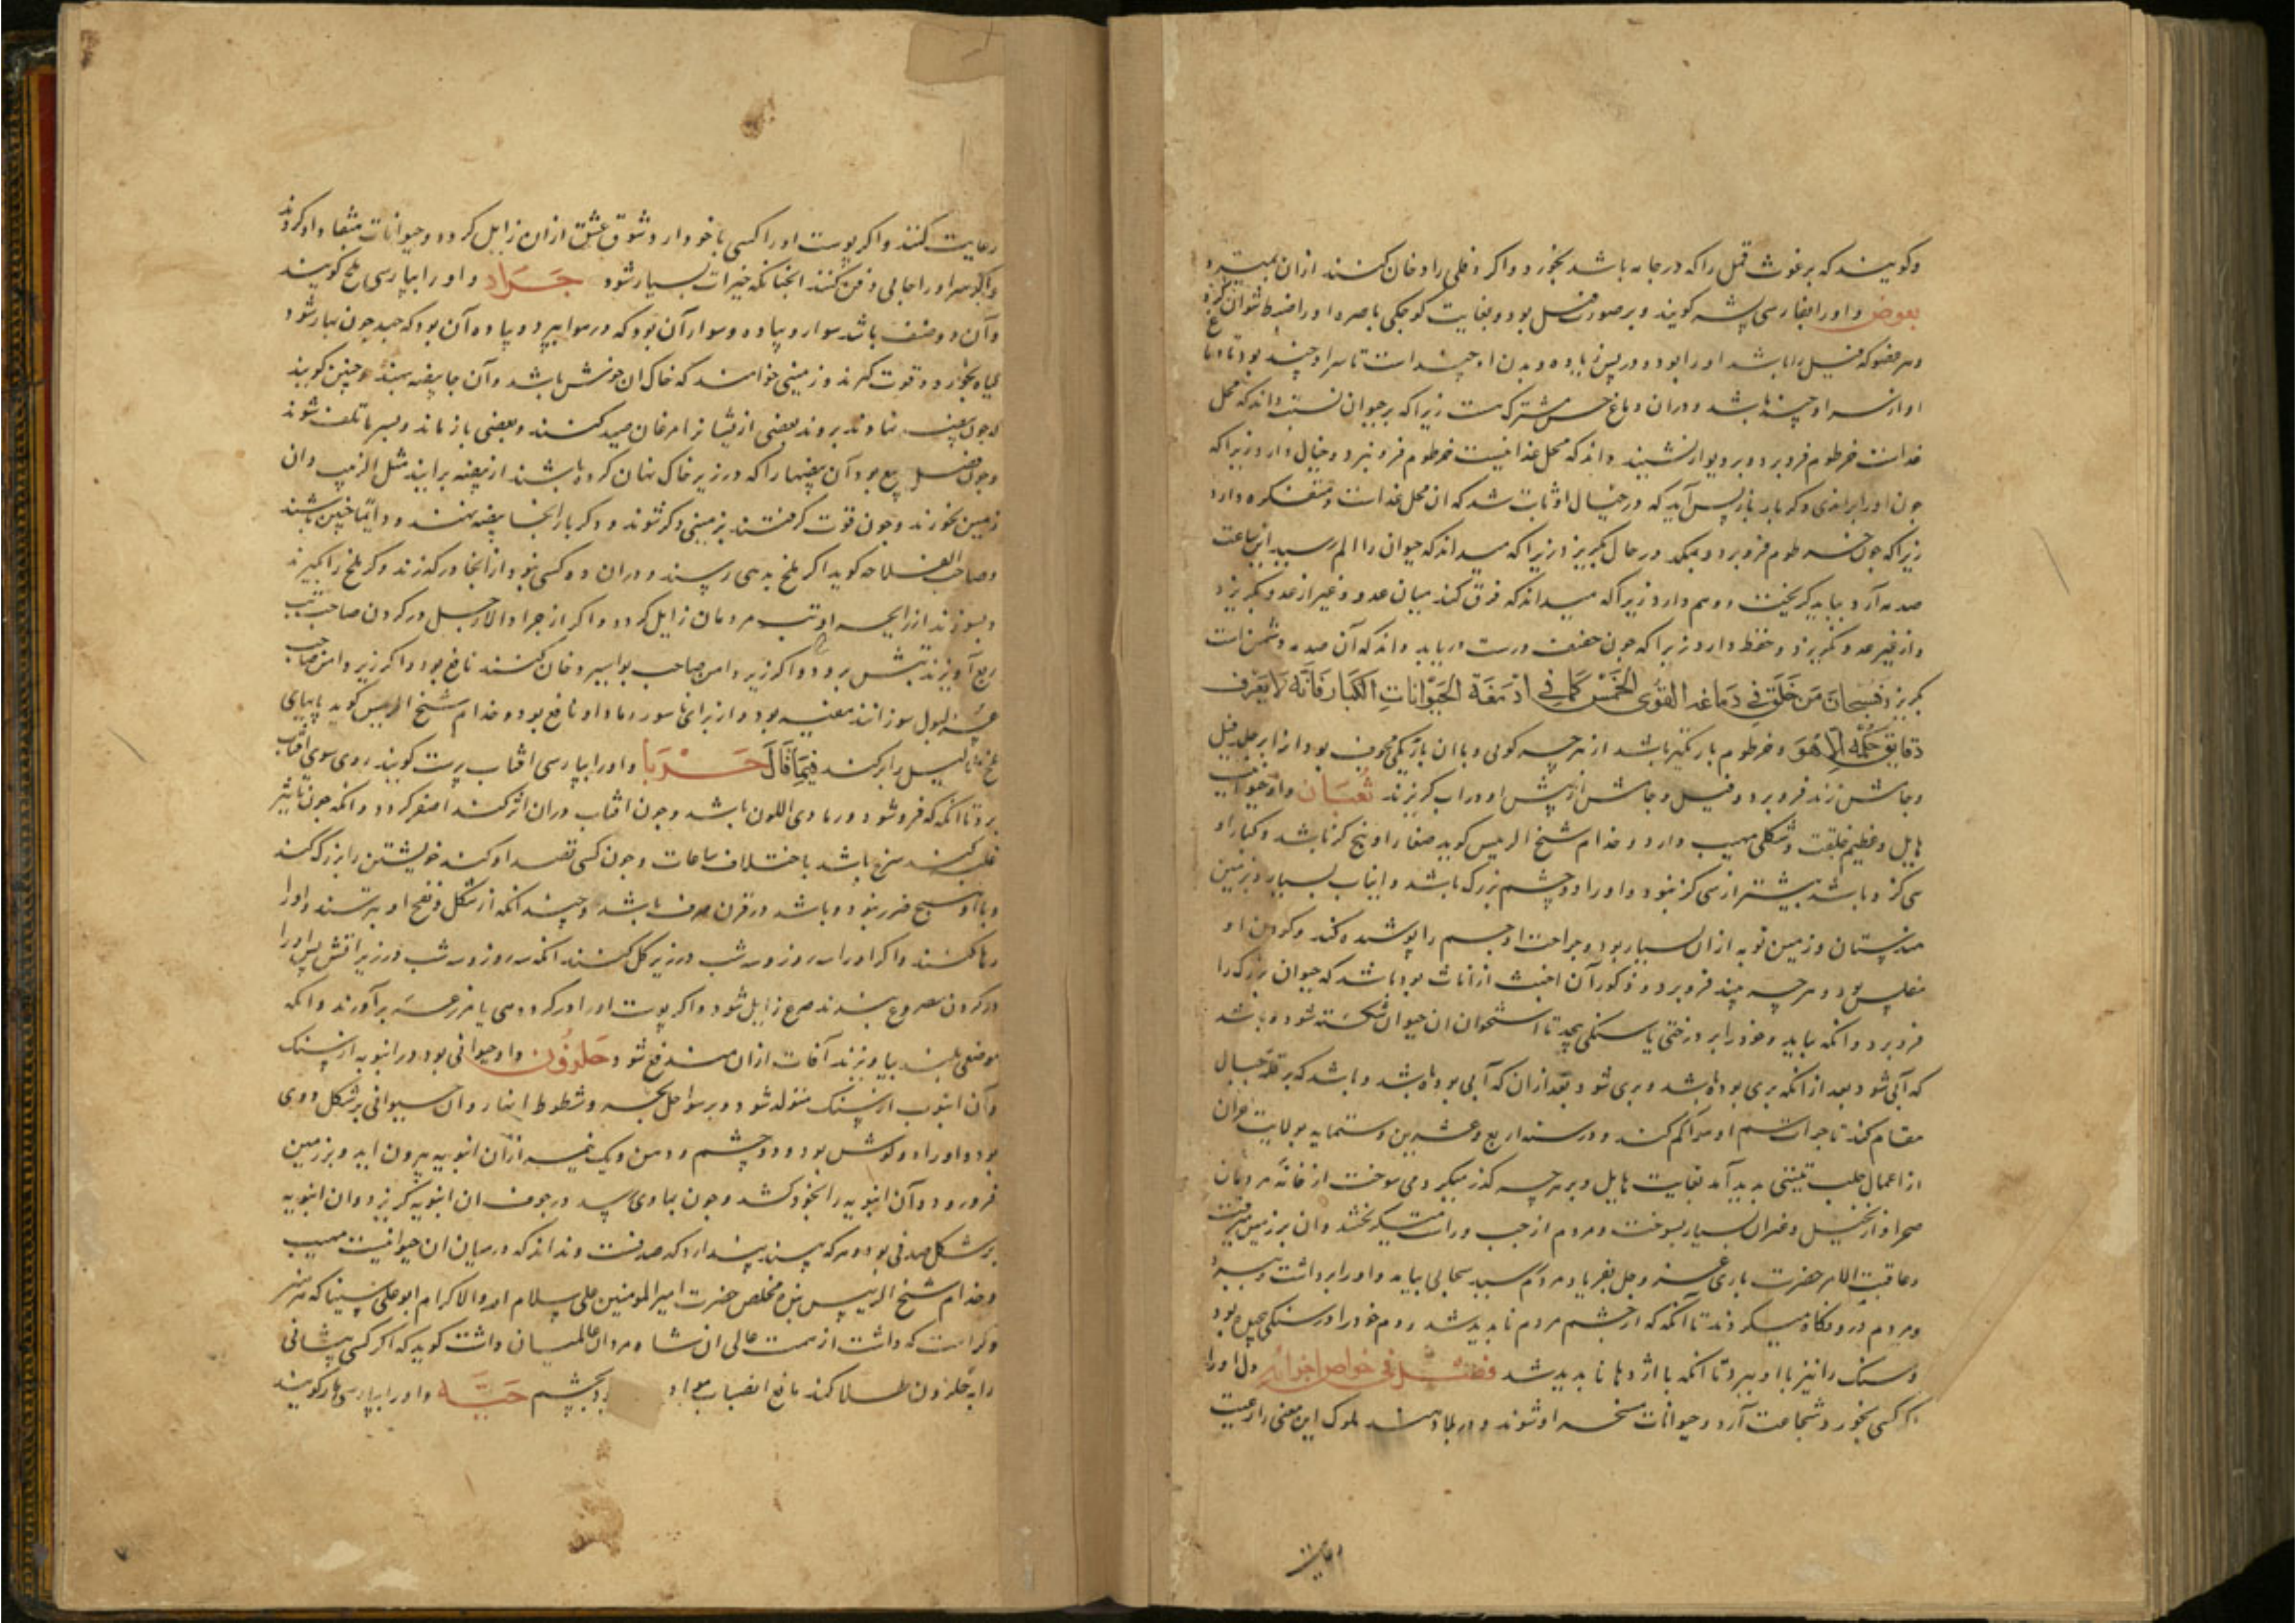 وکویند که برغوث قمل را که در جامه باشد بخورد و اکر دفلی را دخان کنند ازان بمیرد
بعوض و او را بفارسی پشه کویند و بر صورت فیل بود و بغایت کوچکی باصره او را ضبط نتوان کرد
و هر عضو که فیل را باشد او را بود و دو پر زیاده و بدن او چند است تا سر او چند بود تا دماغ
او از سر او چند باشد و دران دماغ حس مشترکست زیرا که بر حیوان نشیند داند که محل
غذاست خرطوم فرو برد و بر دیوار نشیند داند که محل غذا نیست خرطوم فرو نبرد و خیال دارد زیرا که
چون او را برانی دکر بار باز پس آید که در خیال او ثابت شد که آن محل غذاست و متفکره دارد
زیرا که چون خرطوم فرو برد و بمکد در حال بکریزد زیرا که میداند که حیوان را الم رسید این ساعت
صدمه آرد بباید کریخت و وهم دارد زیرا که میداند که فرق کند میان عدو و غیر از عدو بکریزد
و از غیر عدو نکریزد و حفظ دارد زیرا که چون حفیف دست دریابد داند که آن صدمه دشمن است
بکریزد فسبحان من خلق فی دماغه القوی الخمس کما فی ادمغة الحیوانات الکبار فانه لا یعرف
دقایق حکمه الا هو و خرطوم باریکتر باشد از هر چه کوئی و با آن باریکی مجوف بود و از ابر جلد فیل
و جاموش زند فرو برد و فیل و جاموش از پیش او در آب کریزند ثعبان و او حیوانیست
هایل و عظیم خلقت و شکلی مهیب دارد و خدام شیخ الرییس کوید صغار او پنج کز باشد و کبار او
سی کز و باشد بیشتر از سی کز بود و او را دو چشم بزرک باشد و انیاب بسیار و بزمین
هندوستان و زمین نوبه ازان بسیار بود و جراحت او جسم را پوشیده کند و کودهن او
مفلس بود و هر چه بیند فرو برد و ذکور آن اخبث از اناث بود باشد که حیوان بزرک را
فرو برد و آنکه بیاید و خود را بر درختی یا سنکی پیچد تا استخوان آن حیوان شکسته شود و باشد
که آبی شود بعد از آنکه بری بوده باشد و بری شود بعد ازان که آبی بوده باشد و باشد که بر قله جبال
مقام کند تا حرارت سم او هوا کم کند و در سنه اربع و عشرین و ستمایه بولایت حران
از اعمال حلب تنینی بدید آمد بغایت هایل و بر هر چه کذر میکرد می سوخت از خانه مردمان
صحرا و از نخیل و غیران بسیار بسوخت و مردم از چپ و راست میکریختند و آن بر زمین میرفت
و عاقبت الامر حضرت باری عز و جل بفریاد مردم رسید سحابی بیامد و او را برداشت و ببرد
و مردم درو نکاه میکردند تا آنکه که از چشم مردم نابدید شد و دم خود را در سنکی پیچیده بود
و سنک را نیز با او ببرد تا آنکه با اژدها نابدید شد فصل فی خواص اجزائه دل او را
اکر کسی بخورد شجاعت آرد و حیوانات مسخر او شوند و در بلاد هند ملوک این معنی را رعیت
رعایت
رعایت کنند و اکر پوست او را کسی با خود دارد شوق عشق ازان زایل کردد و حیوانات منقاد او کردند
و اکر سر او را جایی دفن کنند آنجنانکه خیرات بسیار شود جراد و او را بپارسی ملخ کویند
و آن دو صنف باشد سوار و پیاده و سوار آن بود که در هوا بپرد و پیاده آن بود که جهد چون بهار شود
کیاه بخورد و قوت کیرند و زمینی خواهند که خاک آن خوش باشد و آن جا بیضه نهند و چنین کویند
که چون بیضه نهادند بروند بعضی از ایشانرا مرغان صید کنند و بعضی باز ماند و بسرما تلف شوند
و چون فصل ربیع بود آن بیضها را که در زیر خاک نهان کرده باشند از بیضه برایند مثل الزبیب و آن
زمین بخورند و چون قوت کرفتند بزمینی دکر شوند و دکر بار آنجا بیضه نهند و دایما چنین باشند
و صاحب الفلاحه کوید اکر ملخ بدهی رسند و دران ده کسی نبود از آنجا درکذرند و کر ملخ را بکیرند
و بسوزند از رایحه او تب مردمان زایل کردد و اکر از جراد الارجل در کردن صاحب تب
ربع آویزند تبش برود و اکر زیر دامن صاحب بواسیر دخان کنند نافع بود و اکر زیر دامن صاحب
عسر البول سوزانند مفید بود و از برای ناسور دماد او نافع بود و خدام شیخ الرییس کوید پایهای
ملخ ثآلیل را برکند فیما قال حربا و او را بپارسی افتاب پرست کویند روی سوی افتاب
برد تا آنکه که فرو شود و رمادی اللون باشد و چون افتاب دران اثر کند اصفر کردد و آنکه چون تاثیر
غلبه کند سرخ باشد باختلاف ساعات و چون کسی قصد او کند خویشتن را بزرک کند
و با او هیچ ضرر نبود و باشد در قرن صرف باشد و چند آنکه از شکل و نفخ او بترسند و او را
رها کنند و اکر او را سه روز و سه شب در زیر کل کنند آنکه سه روز و سه شب در زیر آتش پس او را
در کردن مصروع بندند صرع زایل شود و اکر پوست او را در کرد دهی یا مزرعه برآورند و آنکه
موضعی بلند بیاویزند آفات ازان مندفع شود حلزون و او حیوانی بود در انبوبه از سنک
و آن انبوب از سنک متولد شود و بر سواحل بحر و شطوط انهار و آن حیوانی بر شکل دودی
بود و او را دو کوش بود و دو چشم و دهن و یک نیمه ازان انبوبه بیرون اید و بر زمین
فرو رود و آن انبوبه را بخود کشد و چون بماوی رسد در جوف آن انبوبه کریزد و آن انبوبه
بر شکل صدفی بود و هر که بیند پندارد که صدفست و نداند که در میان آن حیوانیست مهیب
و خدام شیخ الرییس بنده مخلص حضرت امیر المومنین علی سلام الله والاکرام ابو علی سینا که هر هنر
و کرامت که داشت از همت عالی آن شاه مردان عالمیان داشت کوید که اکر کسی پیشانی
را به حلزون طلا کند مانع انصباب مواد بود بچشم حیة و او را بپارسی مار کویند